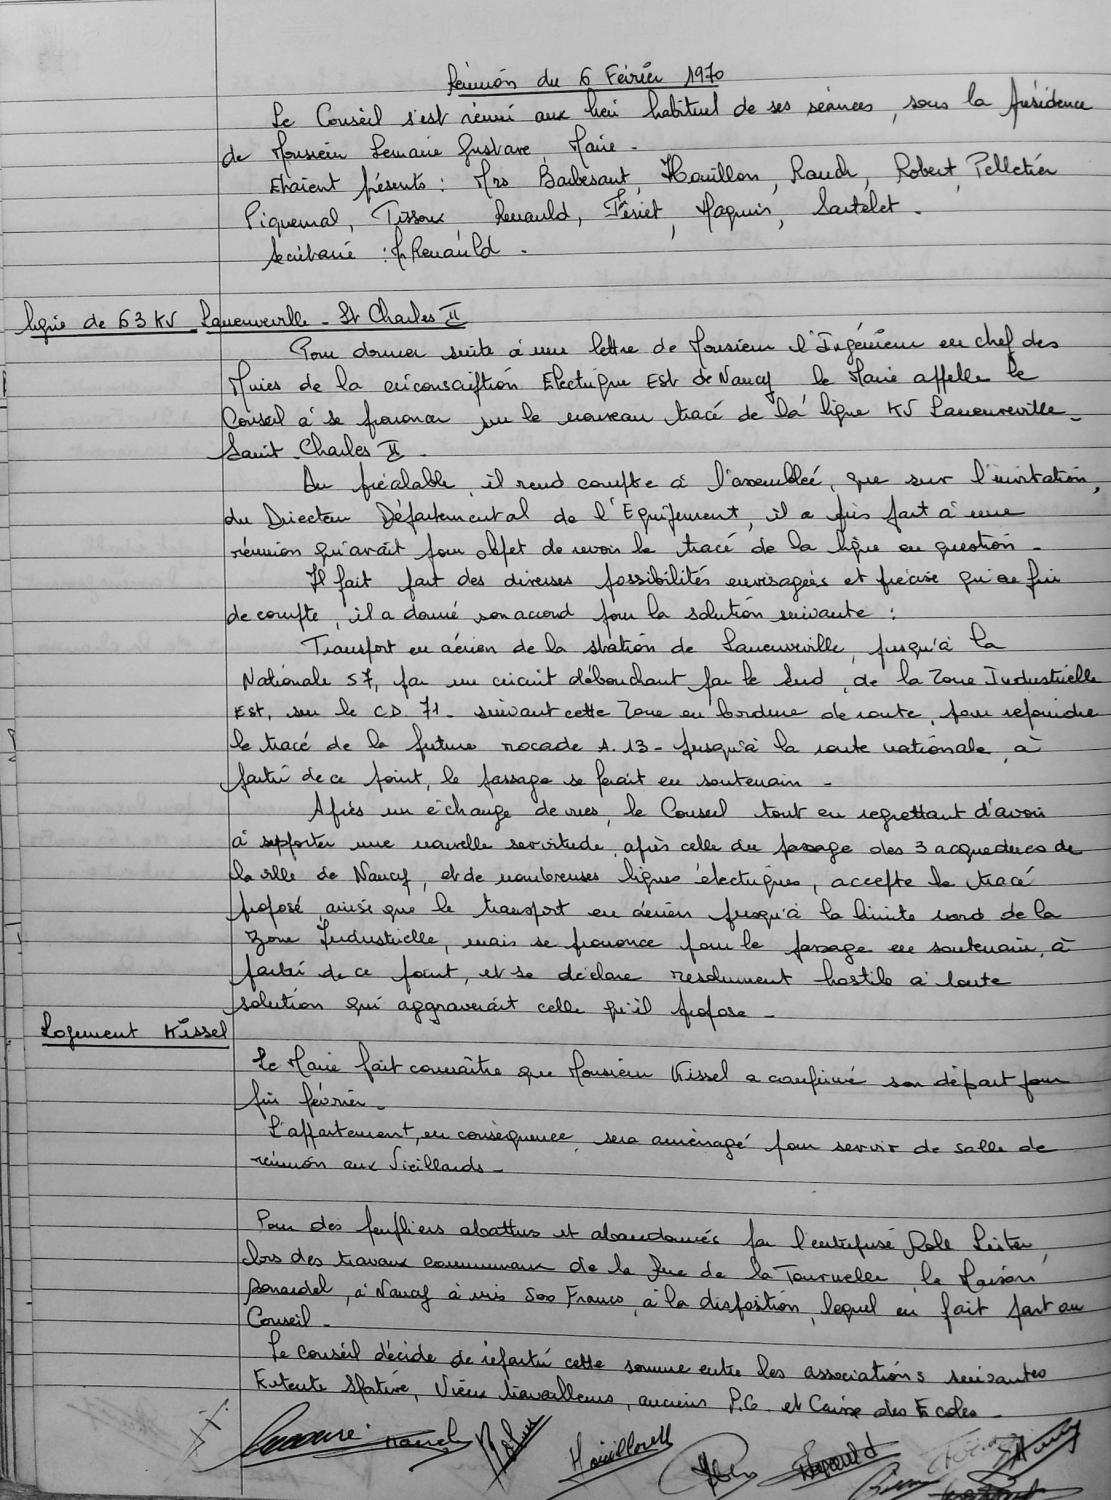 Réunion du 6 Février 1970
Le Conseil s'est réuni aux lieu habituel de ses séances, sous la présidence
de Monsieur Lemaire Gustave, Maire -
Etaient présents : Mrs Barbesant, Houillon, Rauch, Robert, Pelletier
Piquemal, Tissoux Renauld, Fériet, Maquin, Sartelet.
Secrétaire : Mr Renauld.
ligne de 63 KV Laneuveville - St Charles II
Pour donner suite à une lettre de Monsieur l'Ingénieur en chef des
Mines de la circonscription Electrique Est de Nancy le Maire appelle le
Conseil à se prononcer sur le nouveau tracé de la ligne KV Laneuveville -
Saint - Charles II.
Au préalable, il rend compte à l'assemblée, que sur l'invitation,
du Directeur Départemental de l'Equipement, il a pris part à une
réunion qu'avait pour objet de revoir le tracé de la ligne en question -
Il fait part des diverses possibilités envisagées et précise qu'en fin
de compte, il a donné son accord pour la solution suivante :
Transport en aérien de la station de Laneuveville, jusqu'à la
Nationale 57, par un circuit débouchant par le Sud, de la Zone Industrielle
Est, sur le C.D. 71 - suivant cette Zone en bordure de route, pour rejoindre
le tracé de la future rocade A.13 - jusqu'à la route nationale, à
partir de ce point, le passage se ferait en souterrain -
Après un échange de vues, le Conseil tout en regrettant d'avoir
à supporter une nouvelle servitude, après celle du passage des 3 acqueducs de
la ville de Nancy, et de nombreuses lignes électriques, accepte le tracé
proposé ainsi que le transport en aérien jusqu'à la limite nord de la
Zone Industrielle, mais se prononce pour le passage en souterrain, à
partir de ce point, et se déclare résolument hostile à toute
solution qui aggraverait celle qu'il propose -
Logement Kissel
Le Maire fait connaître que Monsieur Kissel a confirmé son départ pour
fin février -
L'appartement, en conséquence, sera aménagé pour servir de salle de
réunion aux Vieillards -
Pour des peupliers abattus et abandonnés par l'entreprise
lors des travaux communaux de la Rue de la Tournelle, la Maison
à Nancy à mis 500 Francs, à la disposition, lequel en fait part au
Conseil -
Le Conseil décide de répartir cette somme entre les associations suivantes
Entente Sportive, Vieux travailleurs, anciens P.G. et Caisse des Ecoles -
Rauch Houillon Renauld